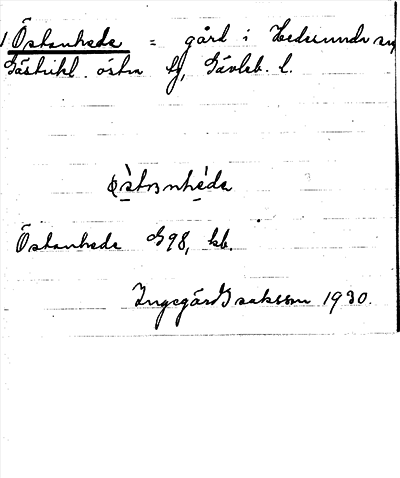 1 Östanhede = gård i Hedesunda sn,
Gästrikl. östra tg, Gävleb. l.
Östanhede 98, kb.
Ingegärd Isaksson 1930.